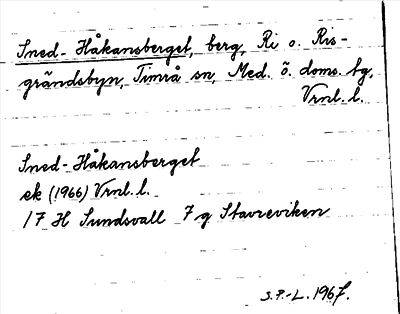 Sned-Håkansberget, berg, Ri o. Ris-
grändsbyn, Timrå sn, Med. ö. doms. tg,
Vrnl. l.
Sned-Håkansberget
ek (1966) Vrnl. l.
17 H Sundsvall 7 g Stavreviken
S.P.-L. 1967.